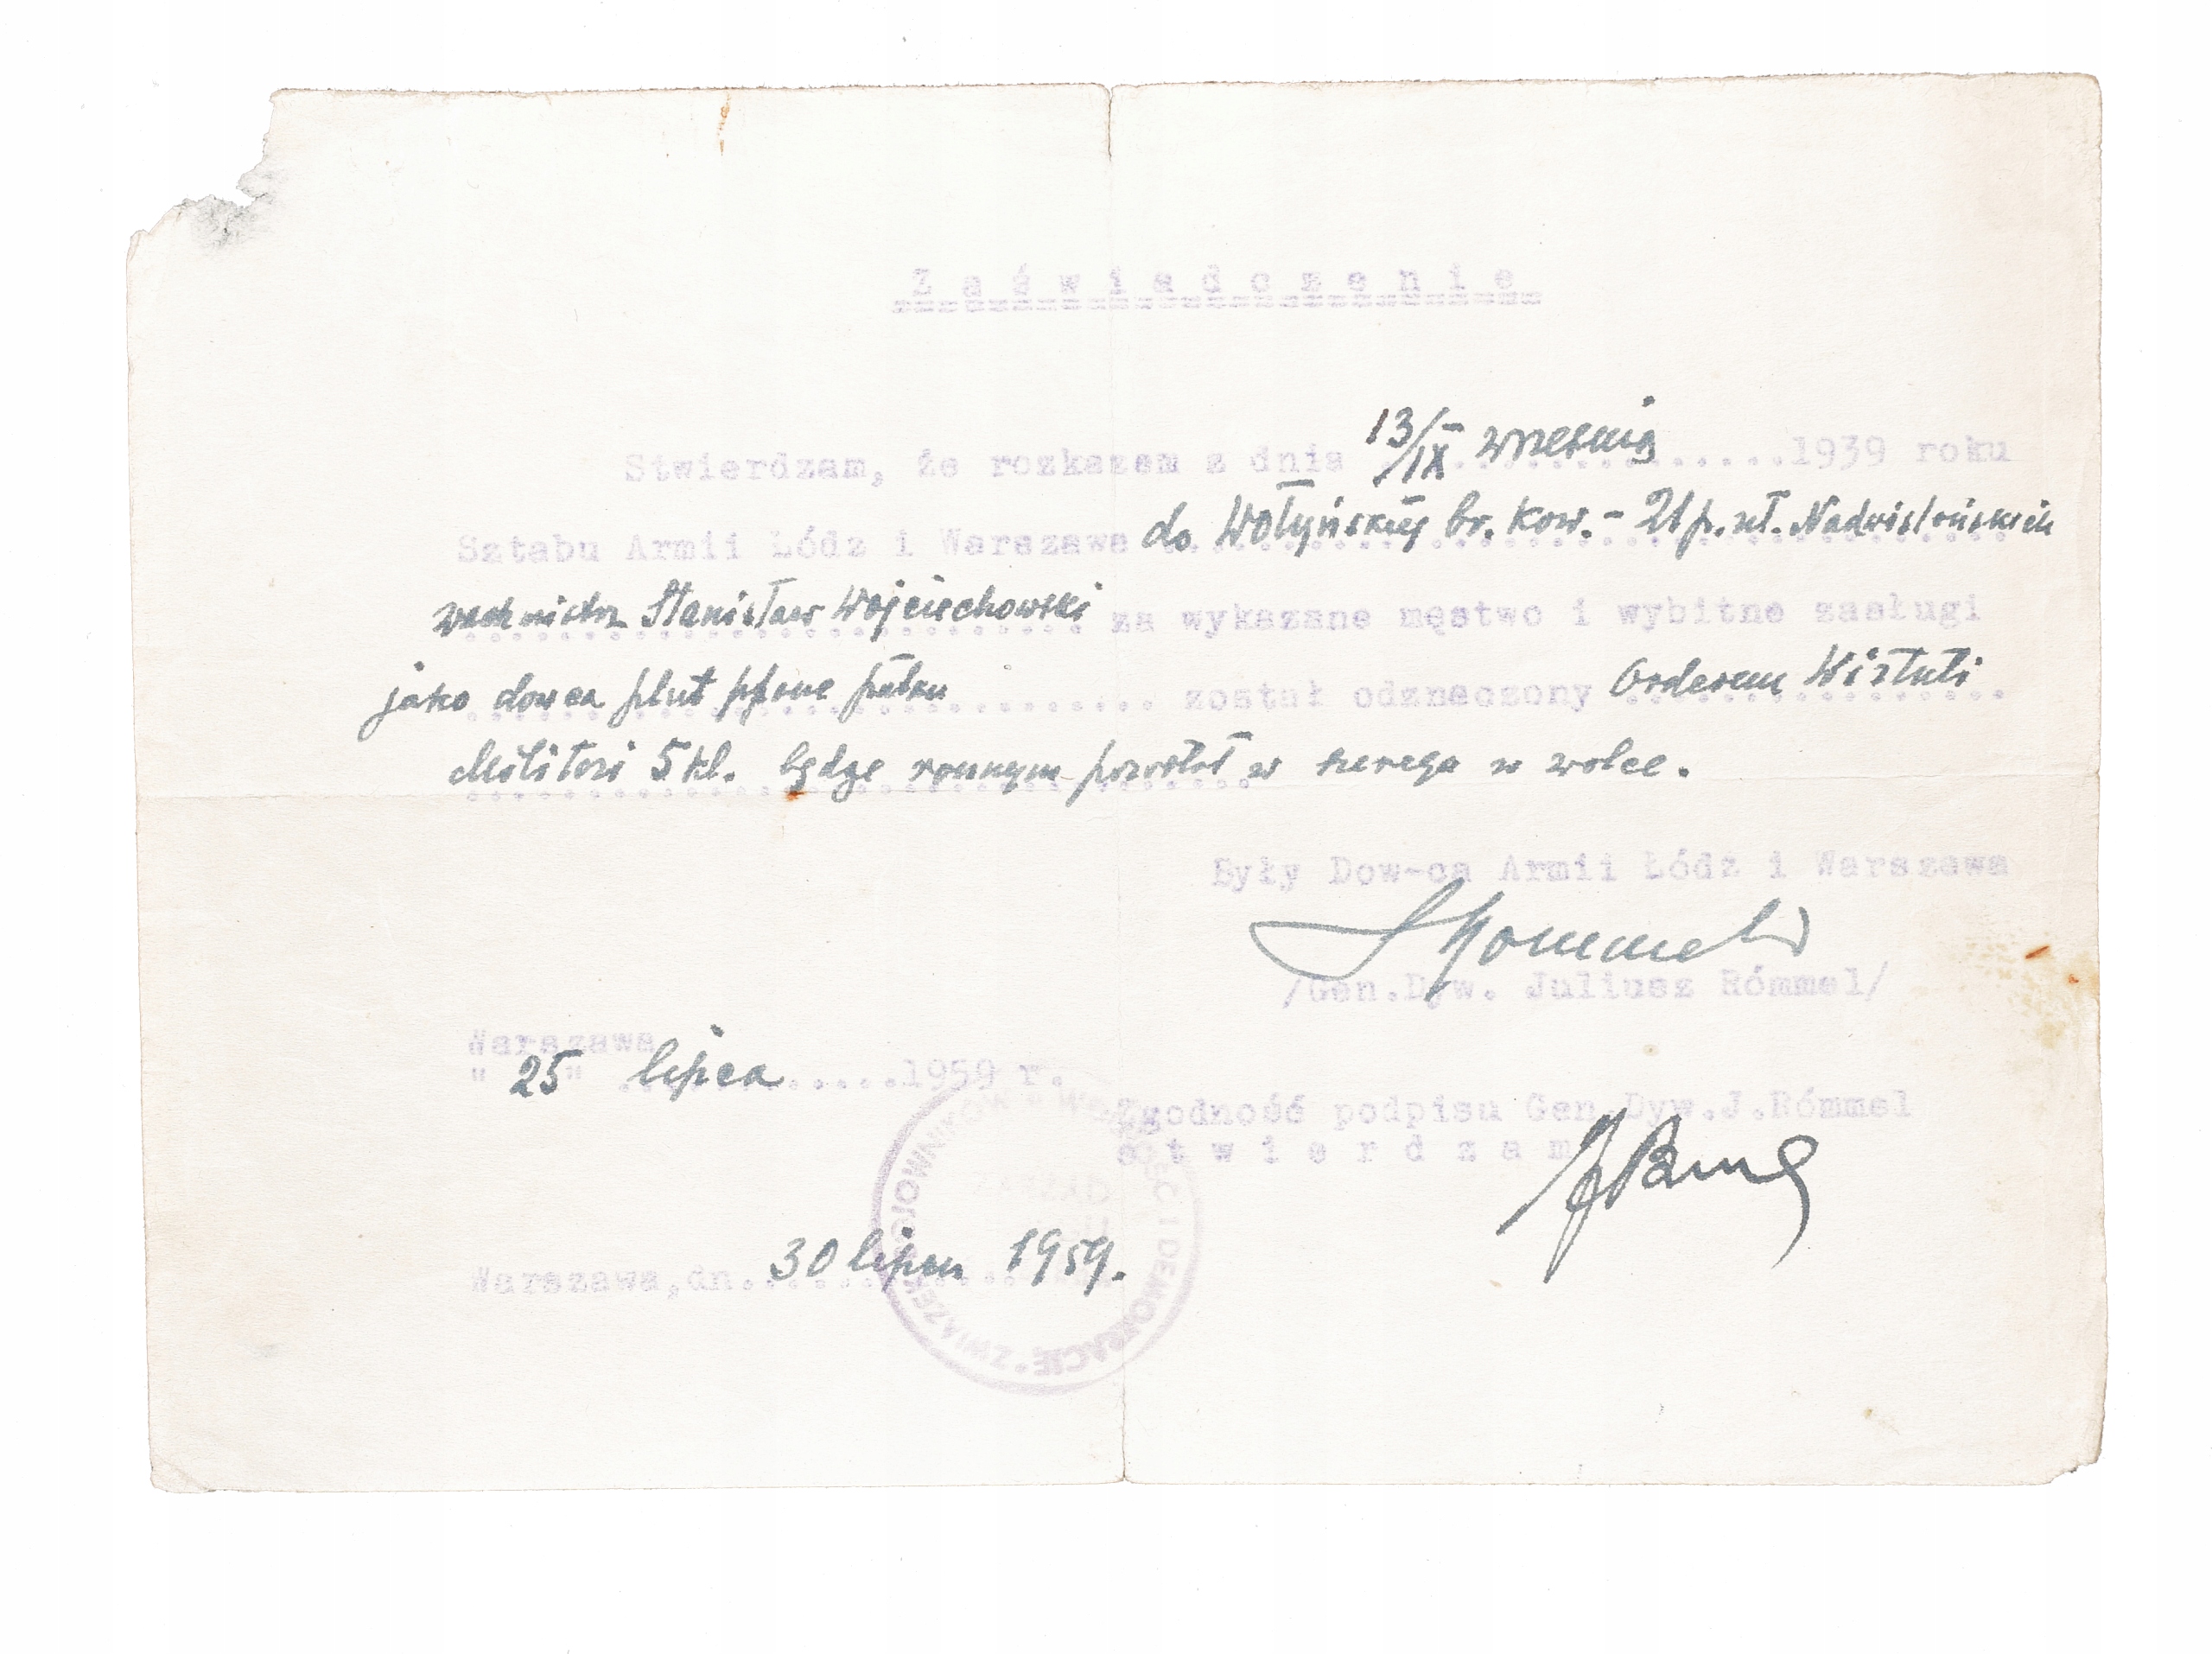 Zaświadczenie
Stwierdzam, że rozkazem z dnia 13/IX września 1939 roku
Sztabu Armii Łódz i Warszawa do Wołyńskiej br. kaw. - 21 p. uł. Nadwiślańskich
wachmistrz Stanisław Wojciechowski za wykazane męstwo i wybitne zasługi
jako dowca plut ppanc pułku został odznaczony Orderem Wirtuti
Militari 5 kl. będąc rannym pozostał w szeregu w walce.
Były Dow-ca Armii Łódź i Warszawa
/Gen.Dyw. Juliusz Rómmel/
Warszawa
" 25 " lipca 1959 r.
Zgodność podpisu Gen.Dyw.J.Rómmel
stwierdzam
Warszawa,dn. 30 lipca 1959.
ZWIĄZEK BOJOWNIKÓW O WOLNOŚĆ I DEMOKRACJĘ
ZARZĄD